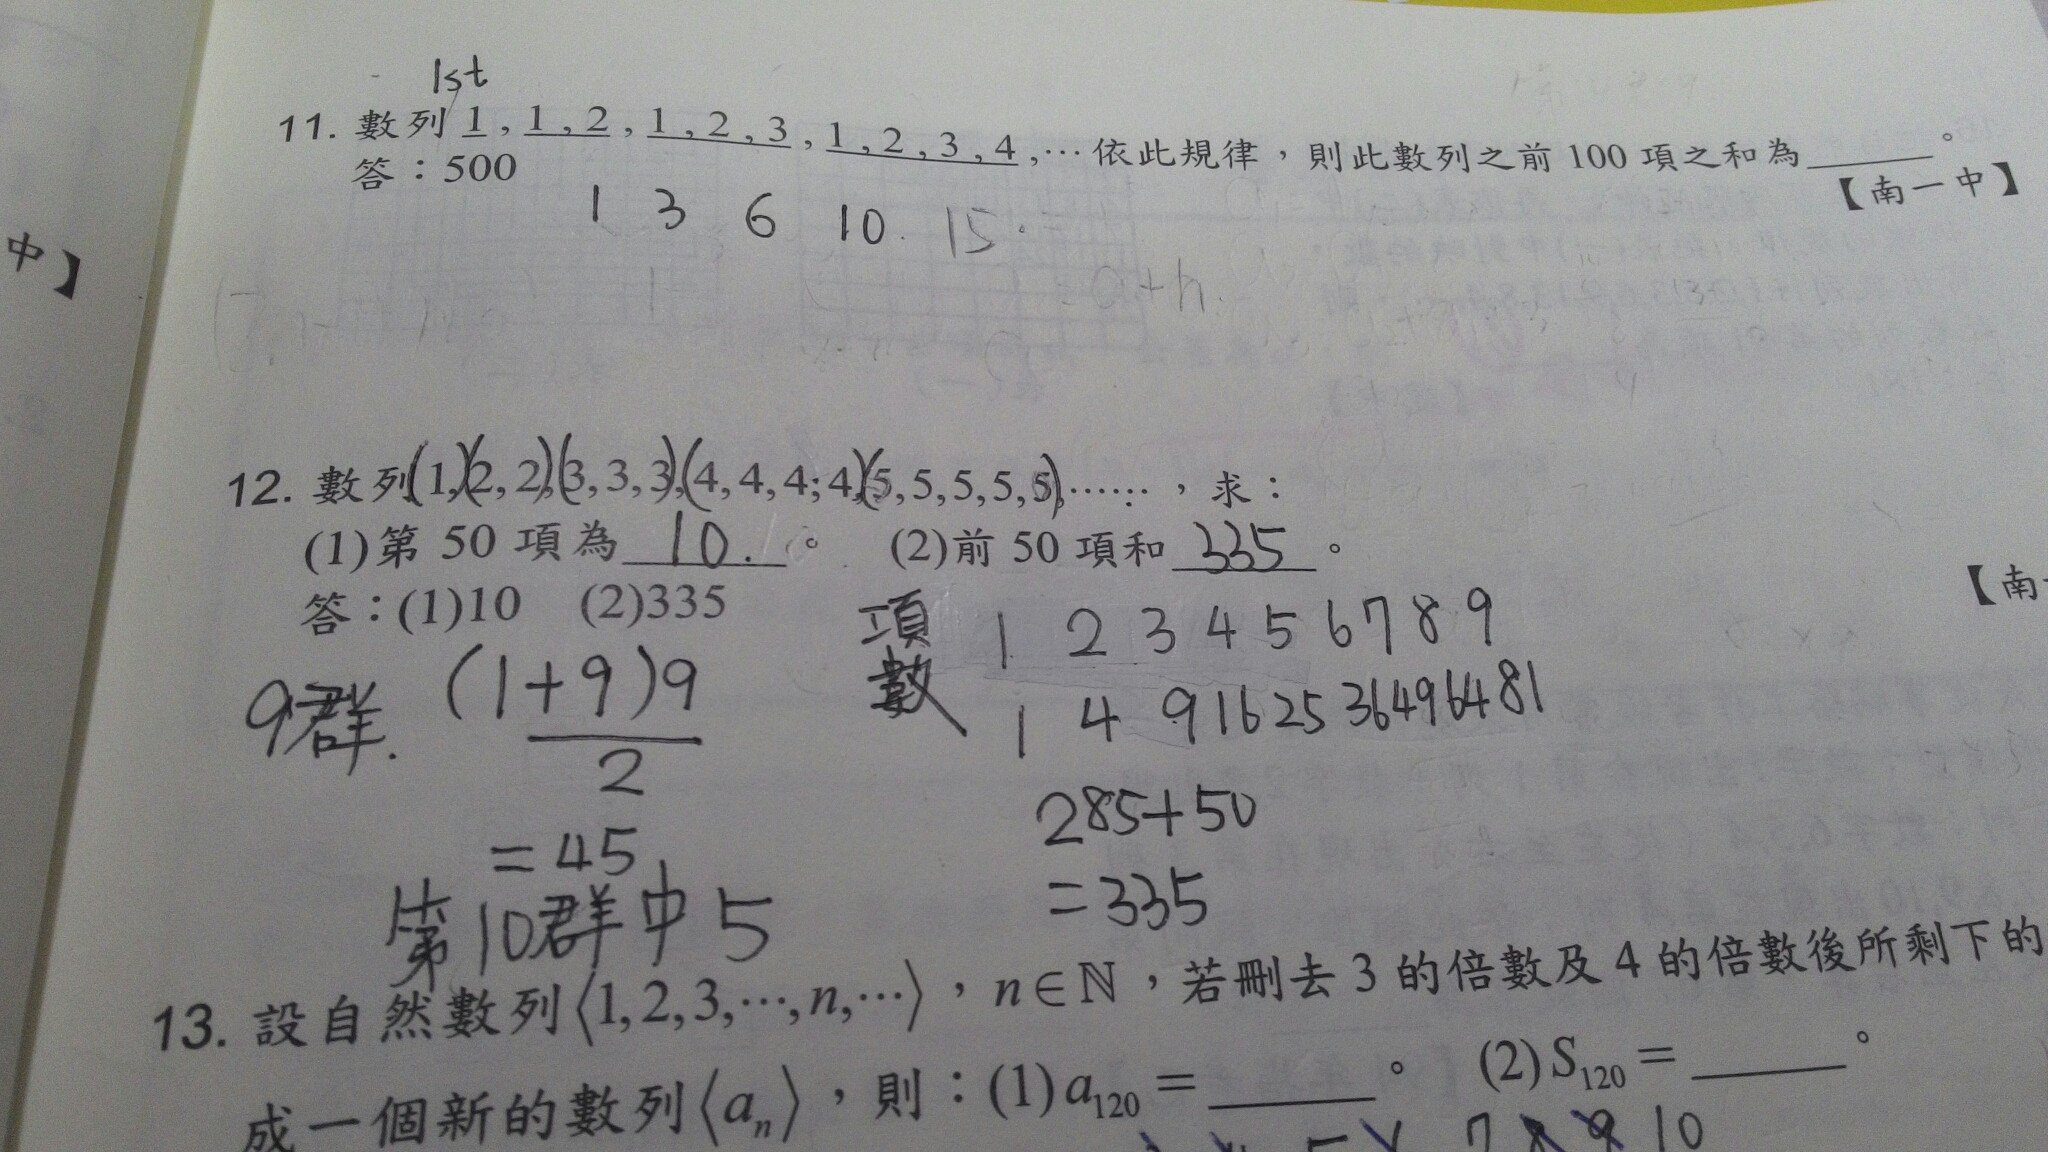 1st
11. 數列 1, 1, 2, 1, 2, 3, 1, 2, 3, 4, ⋯ 依此規律，則此數列之前 100 項之和為______。
答：500
【南一中】
1 3 6 10. 15
中】
12. 數列(1,)(2, 2),(3, 3, 3),(4, 4, 4, 4,)(5, 5, 5, 5, 5), ⋯⋯，求：
(1)第 50 項為 10. 。 (2)前 50 項和 335 。
【南
答：(1)10 (2)335
項數
1 2 3 4 5 6 7 8 9
1 4 9 16 25 36 49 64 81
9群. (1+9)9
2
= 45
285+50
= 335
第10群中5
13. 設自然數列⟨1, 2, 3, ⋯, n, ⋯⟩，n∈ℕ，若刪去 3 的倍數及 4 的倍數後所剩下的
成一個新的數列⟨aₙ⟩，則：(1) a₁₂₀ = ______。 (2) S₁₂₀ = ______。
5 7 8 9 10